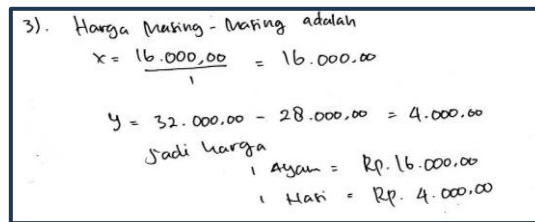 3). Harga Masing - Masing adalah
x = 16.000,00 / 1 = 16.000,00
y = 32.000,00 - 28.000,00 = 4.000,00
Jadi harga
1 Ayam = Rp. 16.000,00
1 Nasi = Rp. 4.000,00